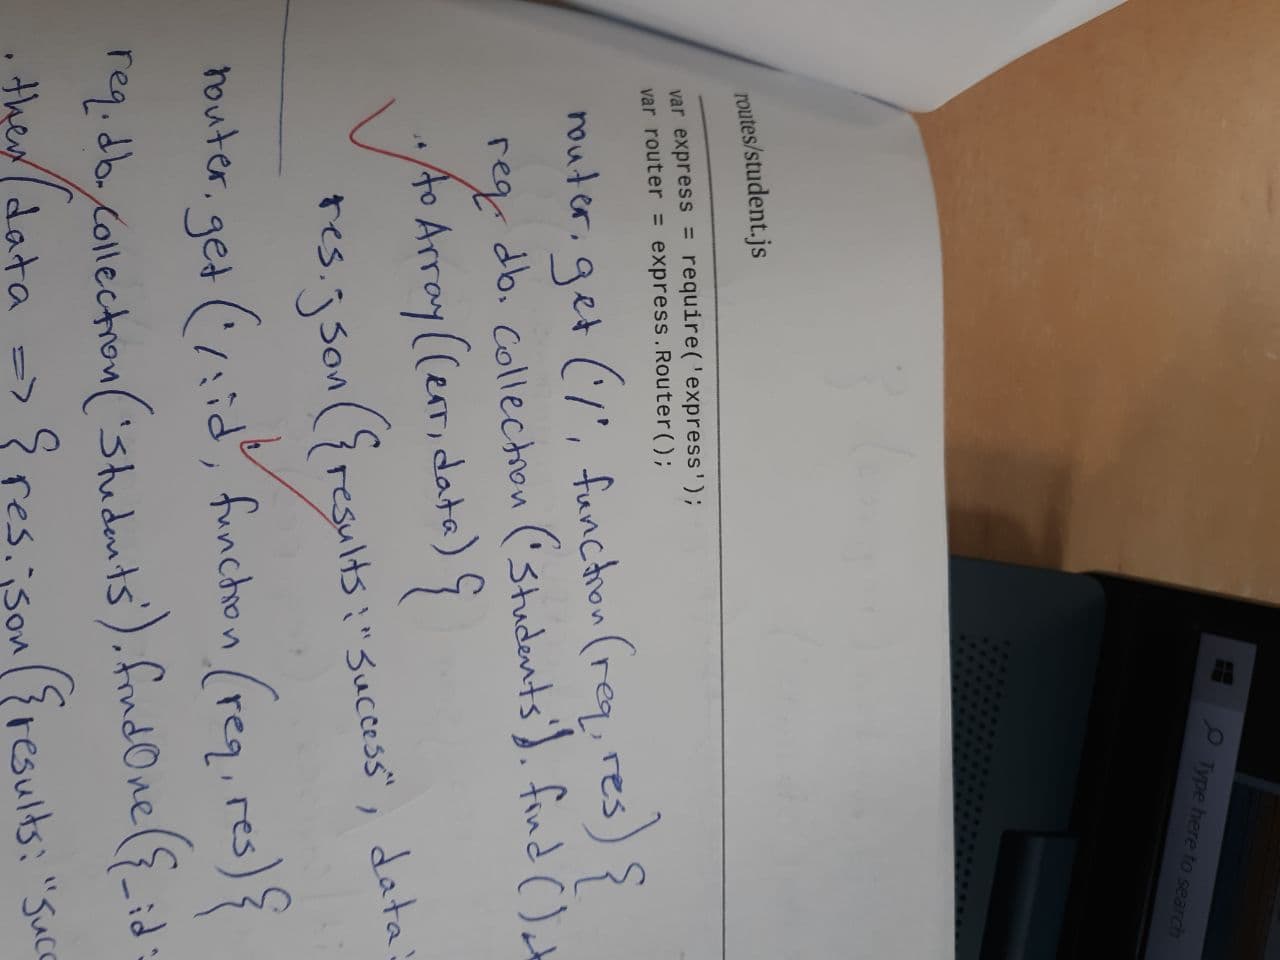 Type here to search
routes/student.js
var express = require('express');
var router = express.Router();
router.get('/', function(req, res) {
req.db.collection('students').find()
.toArray((err, data) {
res.json({results:"success", data:
router.get('/:id', function(req, res) {
req.db.collection('students').findOne({_id:
.then(data => { res.json({results: "succ